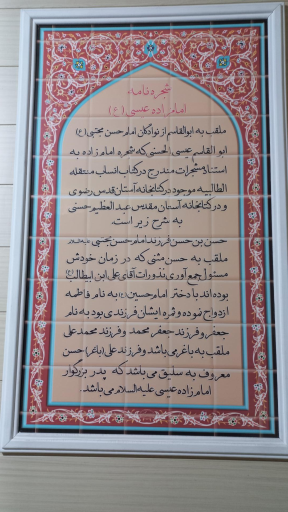 شجره نامه
امام زاده عیسی (ع)
ملقب به ابوالقاسم از نوادگان امام حسن مجتبی (ع)
ابوالقاسم عیسی الحسنی که شجره امام زاده به
استناد مشجرات مندرج در کتاب انساب منتقله
الطالبیه موجود در کتابخانه آستان قدس رضوی
و در کتابخانه آستان مقدس عبدالعظیم حسنی
به شرح زیر است.
حسن بن حسن فرزند امام حسن مجتبی
ملقب به حسن مثنی که در زمان خودش
مسئول جمع آوری نذورات آقای علی ابن ابیطالب
بوده اند با دختر امام حسین (ع) به نام فاطمه
ازدواج نموده و ثمره ایشان فرزندی بود به نام
جعفر و فرزند جعفر محمد و فرزند محمد علی
ملقب به باغر می باشد و فرزند علی (باغر) حسن
معروف به سلیق می باشد که پدر بزرگوار
امام زاده عیسی علیه السلام می باشد.